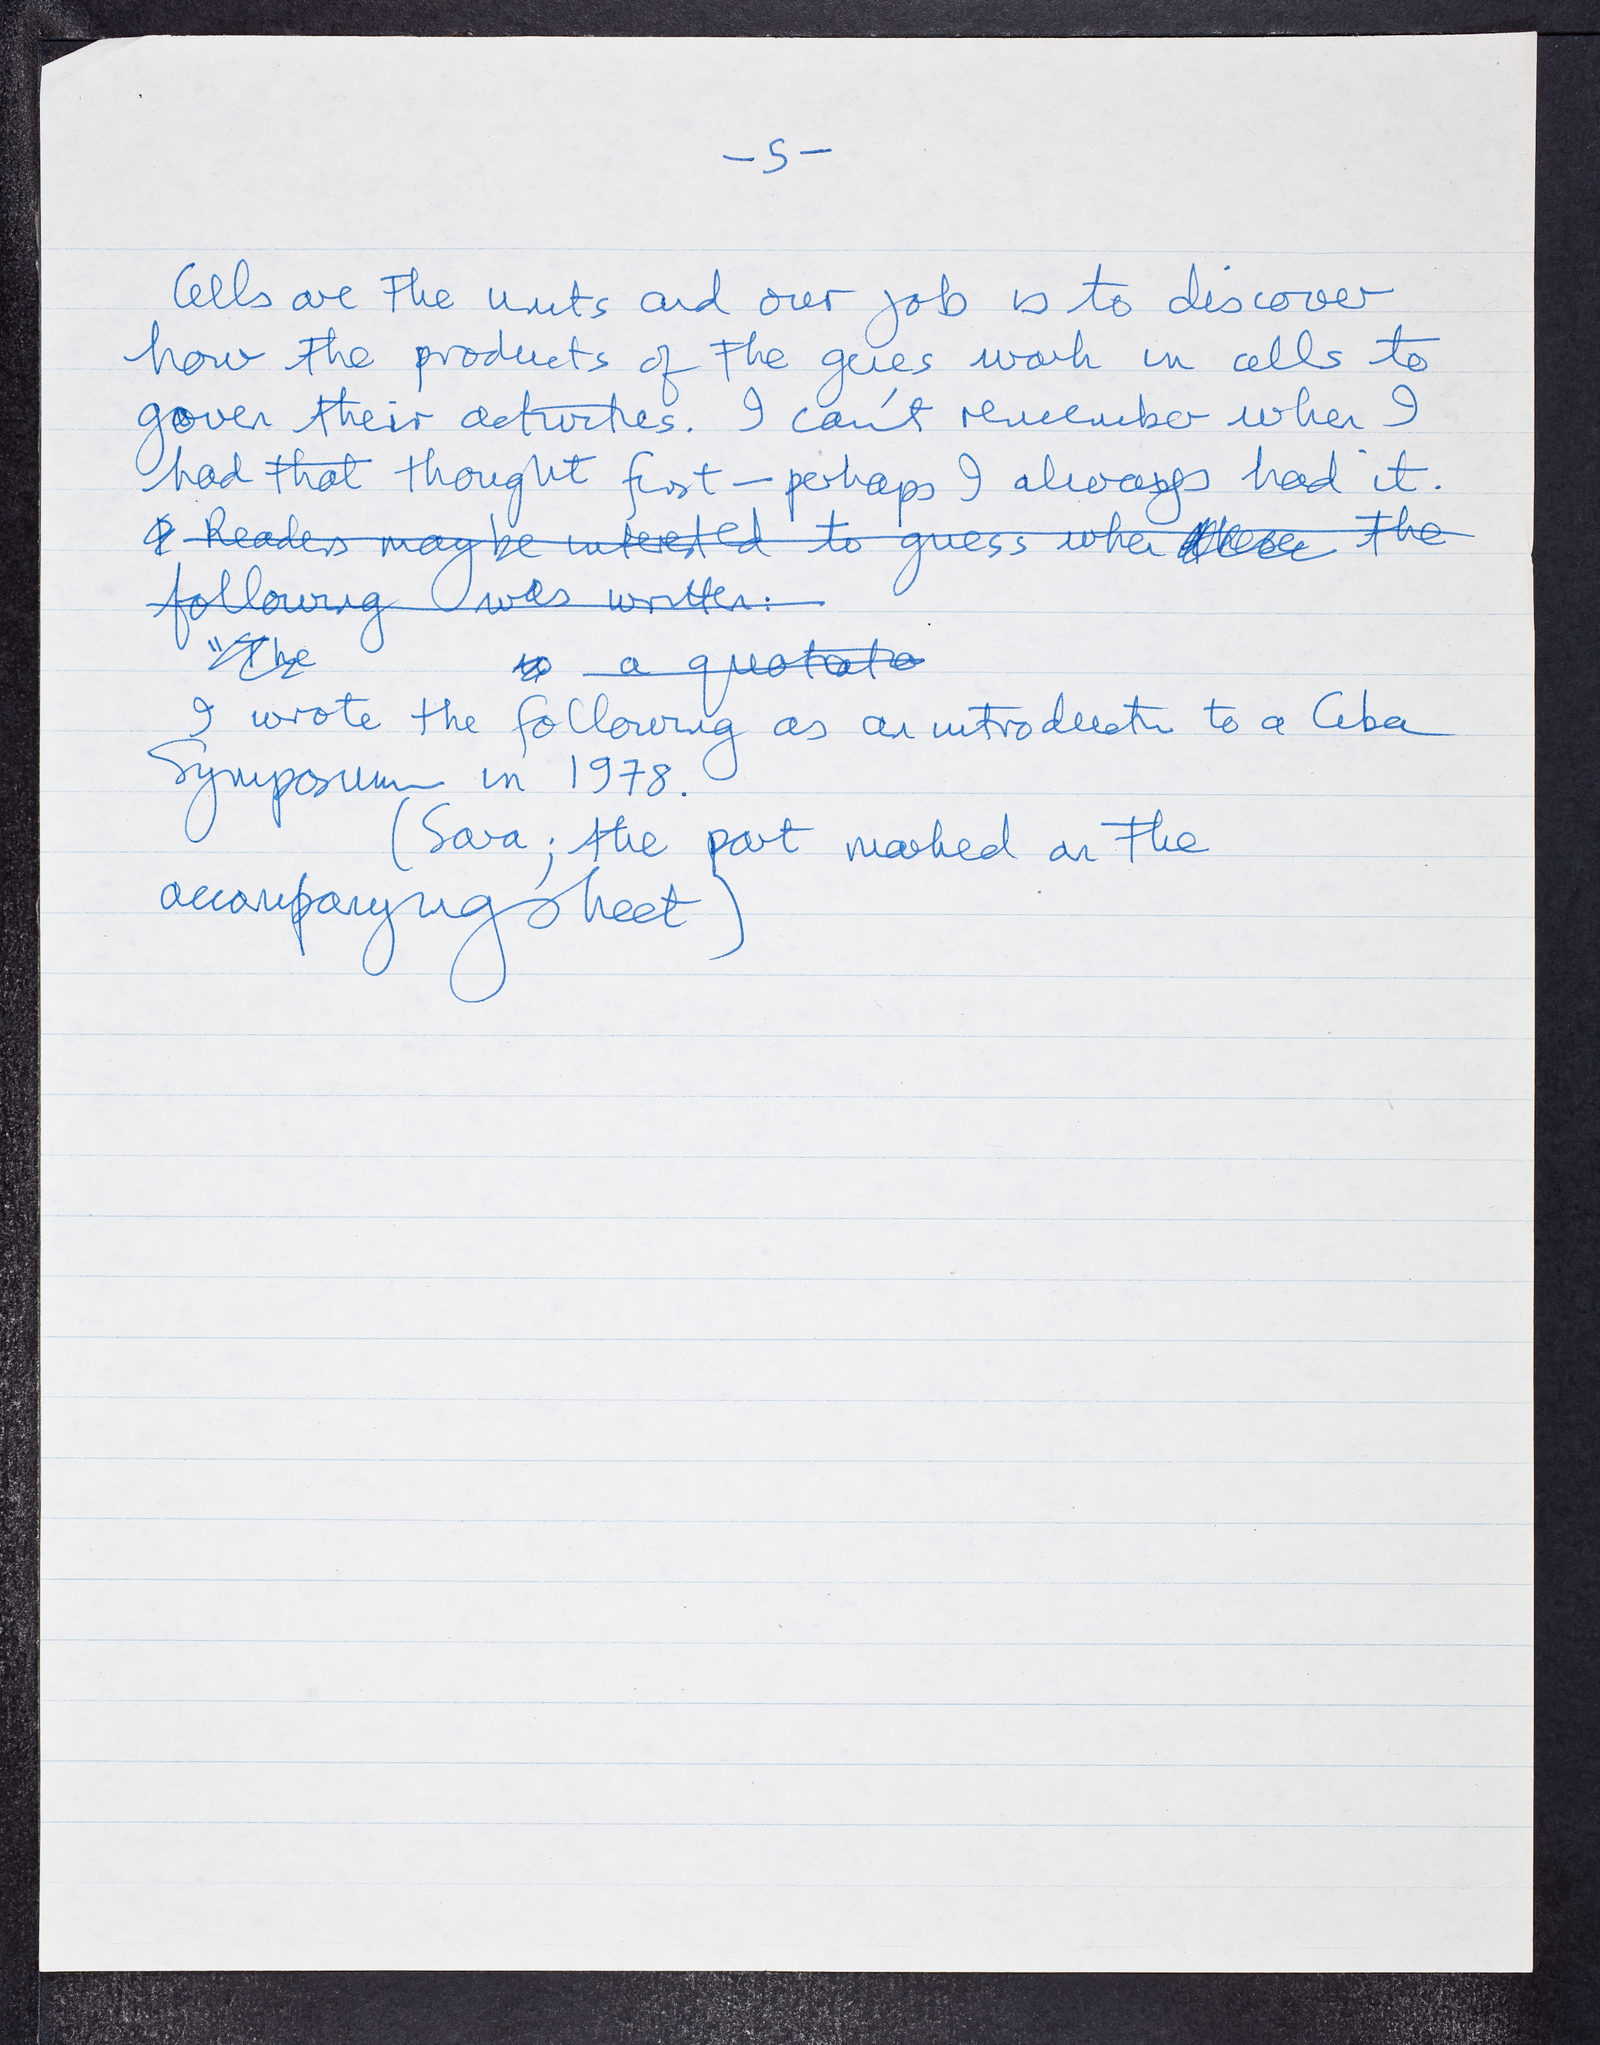 -5-
Cells are the units and our job is to discover
how the products of the genes work in cells to
goven their activities. I can't remember when I
had that thought first - perhaps I always had it.
Readers may be interested to guess when these the
following was written:
"The a quotatio
I wrote the following as an introduction to a Ciba
Symposium in 1978.
(Sara; the part marked on the
accompanying sheet)